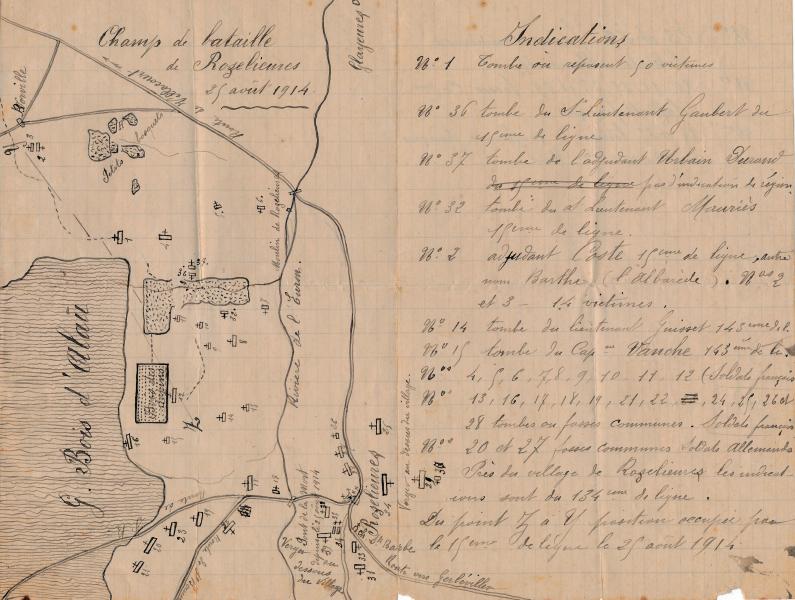 Champ de bataille
de Rozelieures
25 août 1914
Indications
N° 1 Tombe ou reposent 50 victimes
N° 36 tombe du S-Lieutenant Gaubert du
15eme de ligne
N° 37 tombe de l'adjudant Urbain Durand
du 15eme de ligne pas d'indication de régim.
N° 32 tombe du st Lieutenant Mauriès
15eme de ligne.
N° 2 adjudant Coste 15eme de ligne, autre
nom Barthe (l'Albarède). Nos 2
et 3 - 14 victimes.
N° 14 tombe du lieutenant Guisset 143eme de l.
N° 15 tombe du Capne Vanche 143eme de l.
Nos 4, 5, 6, 7, 8, 9, 10, 11, 12 (Soldats français
Nos 13, 16, 17, 18, 19, 21, 22, 24, 25, 26 et
28 tombes ou fosses communes. Soldats français
Nos 20 et 27 fosses communes Soldats Allemands
Près du village de Rozelieures les indicat-
ions sont du 134eme de ligne.
Du point Z à Y position occupée par
le 15eme de ligne le 25 août 1914
Route de Villacourt
Moulin de Rozelieures
Rivière de l'Euron.
G. Bois d'Alaü
Rozelieures
Verger au dessus du village.
Pont de la mort
Verger
dessous
du village
Route vers Gerbéviller